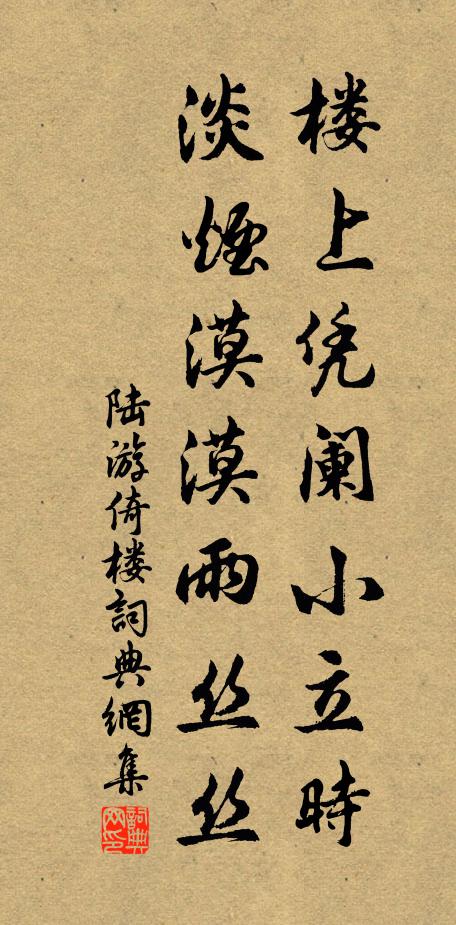 楼上凭阑小立時
淡煙漠漠雨丝丝
陆游倚楼詞典網集
詞典网印